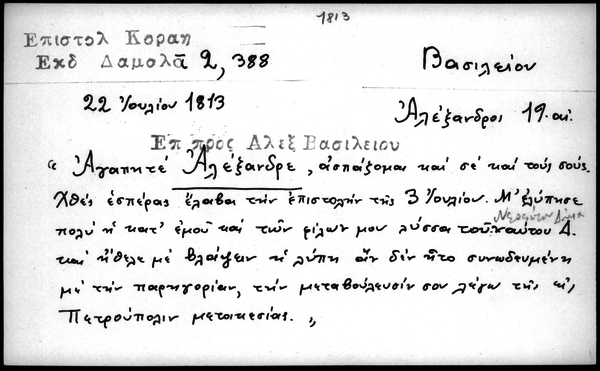 1813
Επιστολ Κοραη
Εκδ Δαμαλᾶ 2, 388
Βασιλείου
22 Ἰουλίου 1813
Ἀλέξανδροι 19. αἰ.
Επ προς Αλεξ Βασιλειου
"Ἀγαπητέ Ἀλέξανδρε, ἀσπάζομαι καί σέ καί τούς σούς.
Χθές ἑσπέρας ἔλαβα τήν ἐπιστολήν τῆς 3 Ἰουλίου. Μ' ἐλύπησε
πολύ ἡ κατ' ἐμοῦ καί τῶν φίλων μου λύσσα τοῦ Δ.
καί ἤθελε μέ βλάψειν ἡ λύπη ἄν δέν ἦτο συνωδευμένη
μέ τήν παρηγορίαν, τήν μεταβούλευσίν σου λέγω τῆς εἰς
Πετρούπολιν μετοικεσίας."